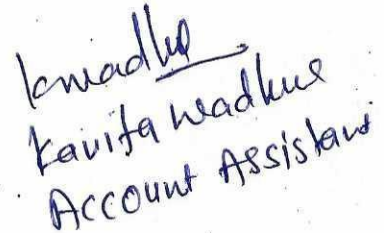 kwadhe
Kavita wadhue
Account Assistant